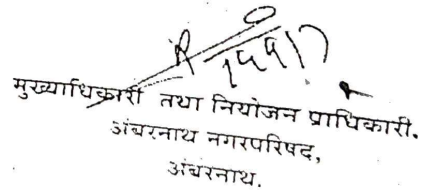 मुख्याधिकारी तथा नियोजन प्राधिकारी.
अंबरनाथ नगरपरिषद,
अंबरनाथ.